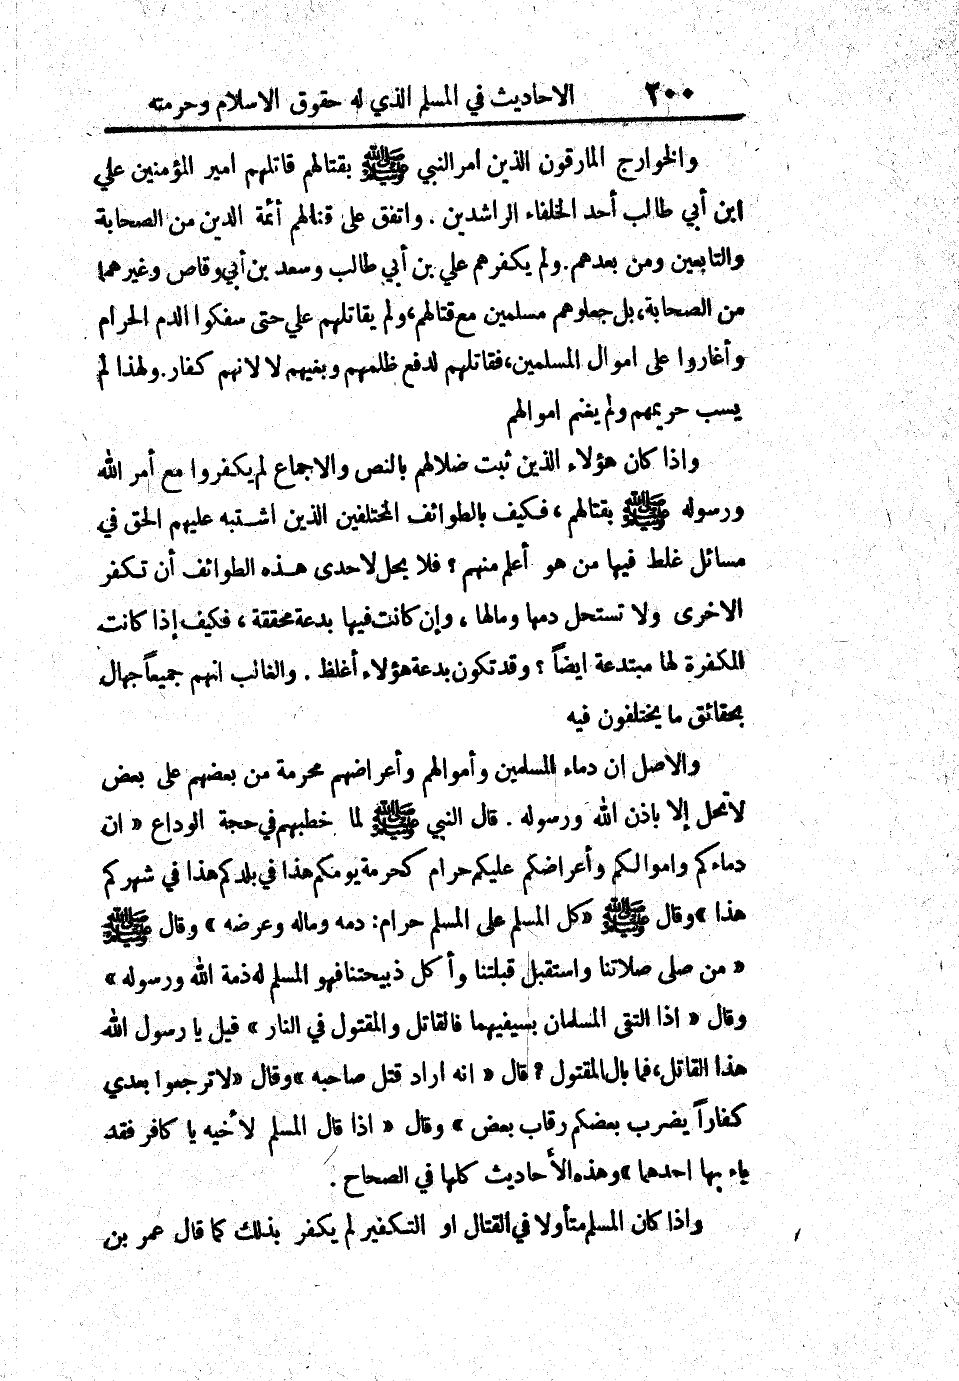 ٢٠٠ الاحاديث في المسلم الذي له حقوق الاسلام وحرمته
والخوارج المارقون الذين امر النبي ﷺ بقتالهم قاتلهم امير المؤمنين علي
ابن أبي طالب أحد الخلفاء الراشدين . واتفق على قتالهم أئمة الدين من الصحابة
والتابعين ومن بعدهم. ولم يكفرهم علي بن أبي طالب وسعد بن أبي وقاص وغيرهما
من الصحابة، بل جعلوهم مسلمين مع قتالهم، ولم يقاتلهم علي حتى سفكوا الدم الحرام
وأغاروا على اموال المسلمين، فقاتلهم لدفع ظلمهم وبغيهم لا لانهم كفار. ولهذا لم
يسب حريمهم ولم يغنم اموالهم
واذا كان هؤلاء الذين ثبت ضلالهم بالنص والاجماع لم يكفروا مع أمر الله
ورسوله ﷺ بقتالهم ، فكيف بالطوائف المختلفين الذين اشتبه عليهم الحق في
مسائل غلط فيها من هو أعلم منهم ؟ فلا يحل لاحدى هذه الطوائف أن تكفر
الاخرى ولا تستحل دمها ومالها ، وإن كانت فيها بدعة محققة ، فكيف إذا كانت
المكفرة لها مبتدعة ايضاً ؟ وقد تكون بدعة هؤلاء أغلظ . والغالب انهم جميعاً جهال
بحقائق ما يختلفون فيه
والاصل ان دماء المسلمين وأموالهم وأعراضهم محرمة من بعضهم على بعض
لا تحل إلا باذن الله ورسوله . قال النبي ﷺ لما خطبهم في حجة الوداع « ان
دماءكم واموالكم وأعراضكم عليكم حرام كحرمة يومكم هذا في بلدكم هذا في شهركم
هذا » وقال ﷺ « كل المسلم على المسلم حرام: دمه وماله وعرضه » وقال ﷺ
« من صلى صلاتنا واستقبل قبلتنا وأكل ذبيحتنا فهو المسلم له ذمة الله ورسوله »
وقال « اذا التقى المسلمان بسيفيهما فالقاتل والمقتول في النار » قيل يا رسول الله
هذا القاتل، فما بال المقتول ؟ قال « انه اراد قتل صاحبه » وقال « لا ترجعوا بعدي
كفاراً يضرب بعضكم رقاب بعض » وقال « اذا قال المسلم لأخيه يا كافر فقد
باء بها احدهما » وهذه الأحاديث كلها في الصحاح .
واذا كان المسلم متأولا في القتال او التكفير لم يكفر بذلك كما قال عمر بن